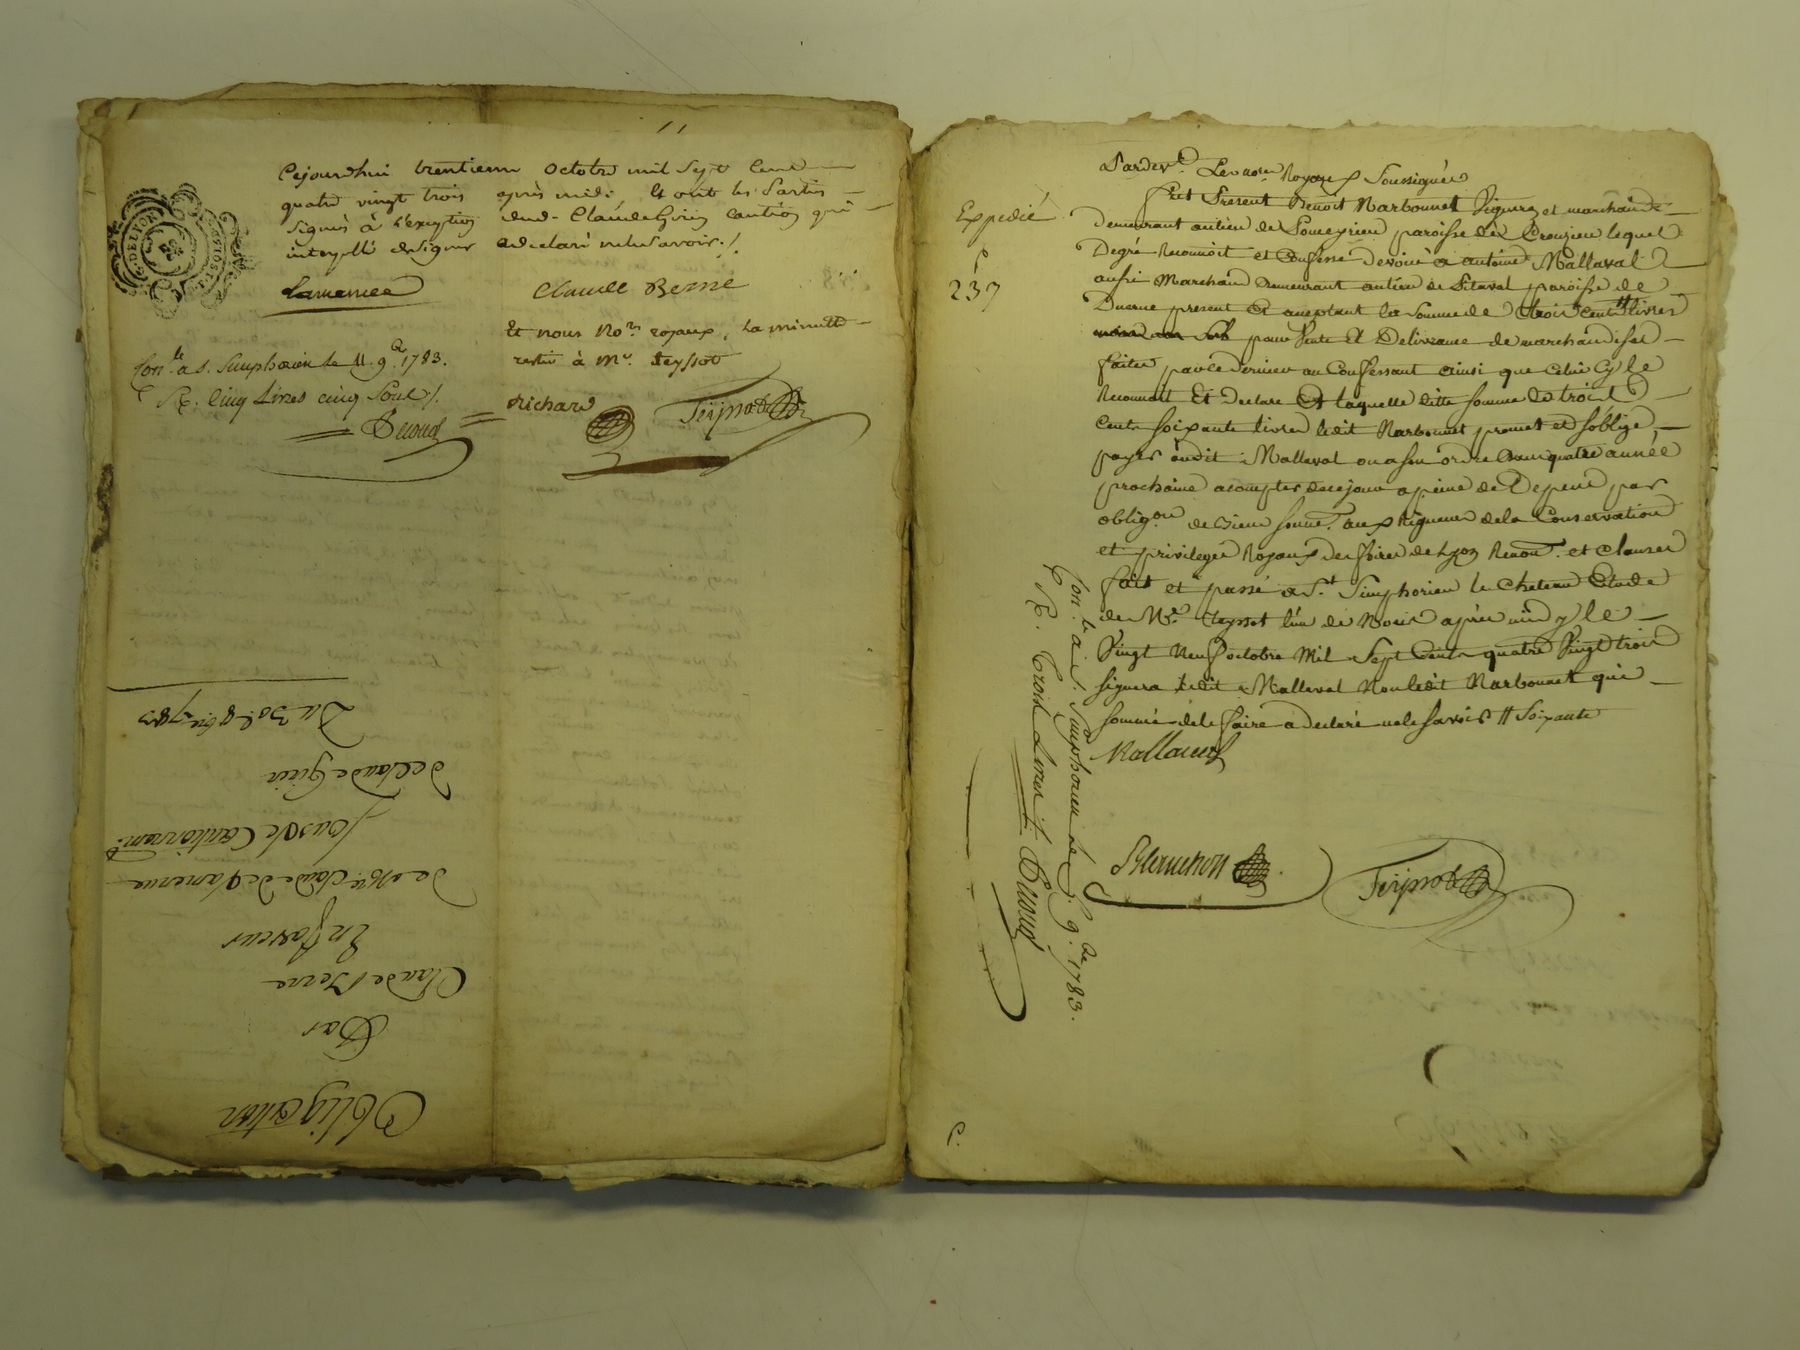 Cejourdhui trentieme octobre mil sept Cent
quatre vingt trois après midi. Et ont les Parties
signés à L'exception dud. Claude Giry caution qui
interpellé designer adeclaré nele savoir ./.
Lamenuea
Claude Berne
Et nous No.res royaux, La minutte
restée à Me. Teyssot
Richard
Teyssot
Con.lé a s. Simphorien le 11. 9.bre 1783.
R. Cinq Livres cinq Sous ./.
Decoud
G. DELYON
Du 30. 8bre 1783
declaude Girin
sous le Cautionnem.t
de Me. Claude de
En faveur
Claude Berne
Par
Obligation
Expedié
237
Pardev.t Les no.res Royaux Soussignés
fut Present Benoit Narbonnet Vigneron et marchand
demeurant aulieu de paroisse de lequel
Degré Reconnoit et Confesse devoir a antoine Mallaval
aussi Marchand Demeurant aulieu de Pitaval paroisse de
Duerne present Et aceptant la Somme de trois Cents livres
pour Vente Et Delivrance de marchandises
faites parce dernier au Confessant ainsi que Celui Cy le
Reconnoit Et Declare Et laquelle ditte somme de trois
Cents soixante livres ledit Narbonnet promet et s'oblige
payer audit Mallaval ou a son ordre dans quatre année
prochaine acompter decejour apeine de Depens par
oblig.on de Biens soum.on aux Rigueurs dela Conservation
et privileges Royaux des foires de Lyon Renon.on et Clauses
fait et passé a St. Simphorien le Chateau Etude
de Me. Teyssot l'un de Nous après midy le
Vingt Neuf octobre Mil Sept Cents quatre Vingt trois
signera ledit Mallaval Non ledit Narbonnet qui
sommé dele faire a Declaré nele savoir // Soixante
Mallaval
Teyssot
Con.lé a s. Simphorien le 9.bre 1783.
R. Trois Livres ./. Decoud
C.